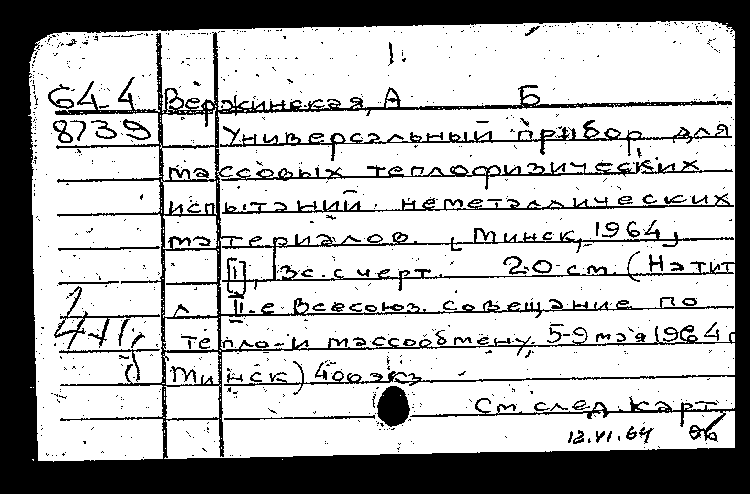 1.
64-4 Вержинская, А Б
8739 Универсальный прибор для
массовых теплофизических
испытаний неметаллических
материалов. [Минск, 1964]
[1], 3с. с черт. 20 см. (На тит
л II-е Всесоюз. совещание по
тепло-и массообмену, 5-9 мая 1964 г
Минск) 400 экз
См след. карт.
12.VI.64